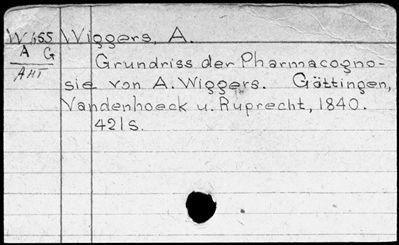 W 455 Wiggers, A.
A G
AHT
Grundriss der Pharmacogno-
sie von A. Wiggers. Göttingen,
Vandenhoeck u. Ruprecht, 1840.
421s.